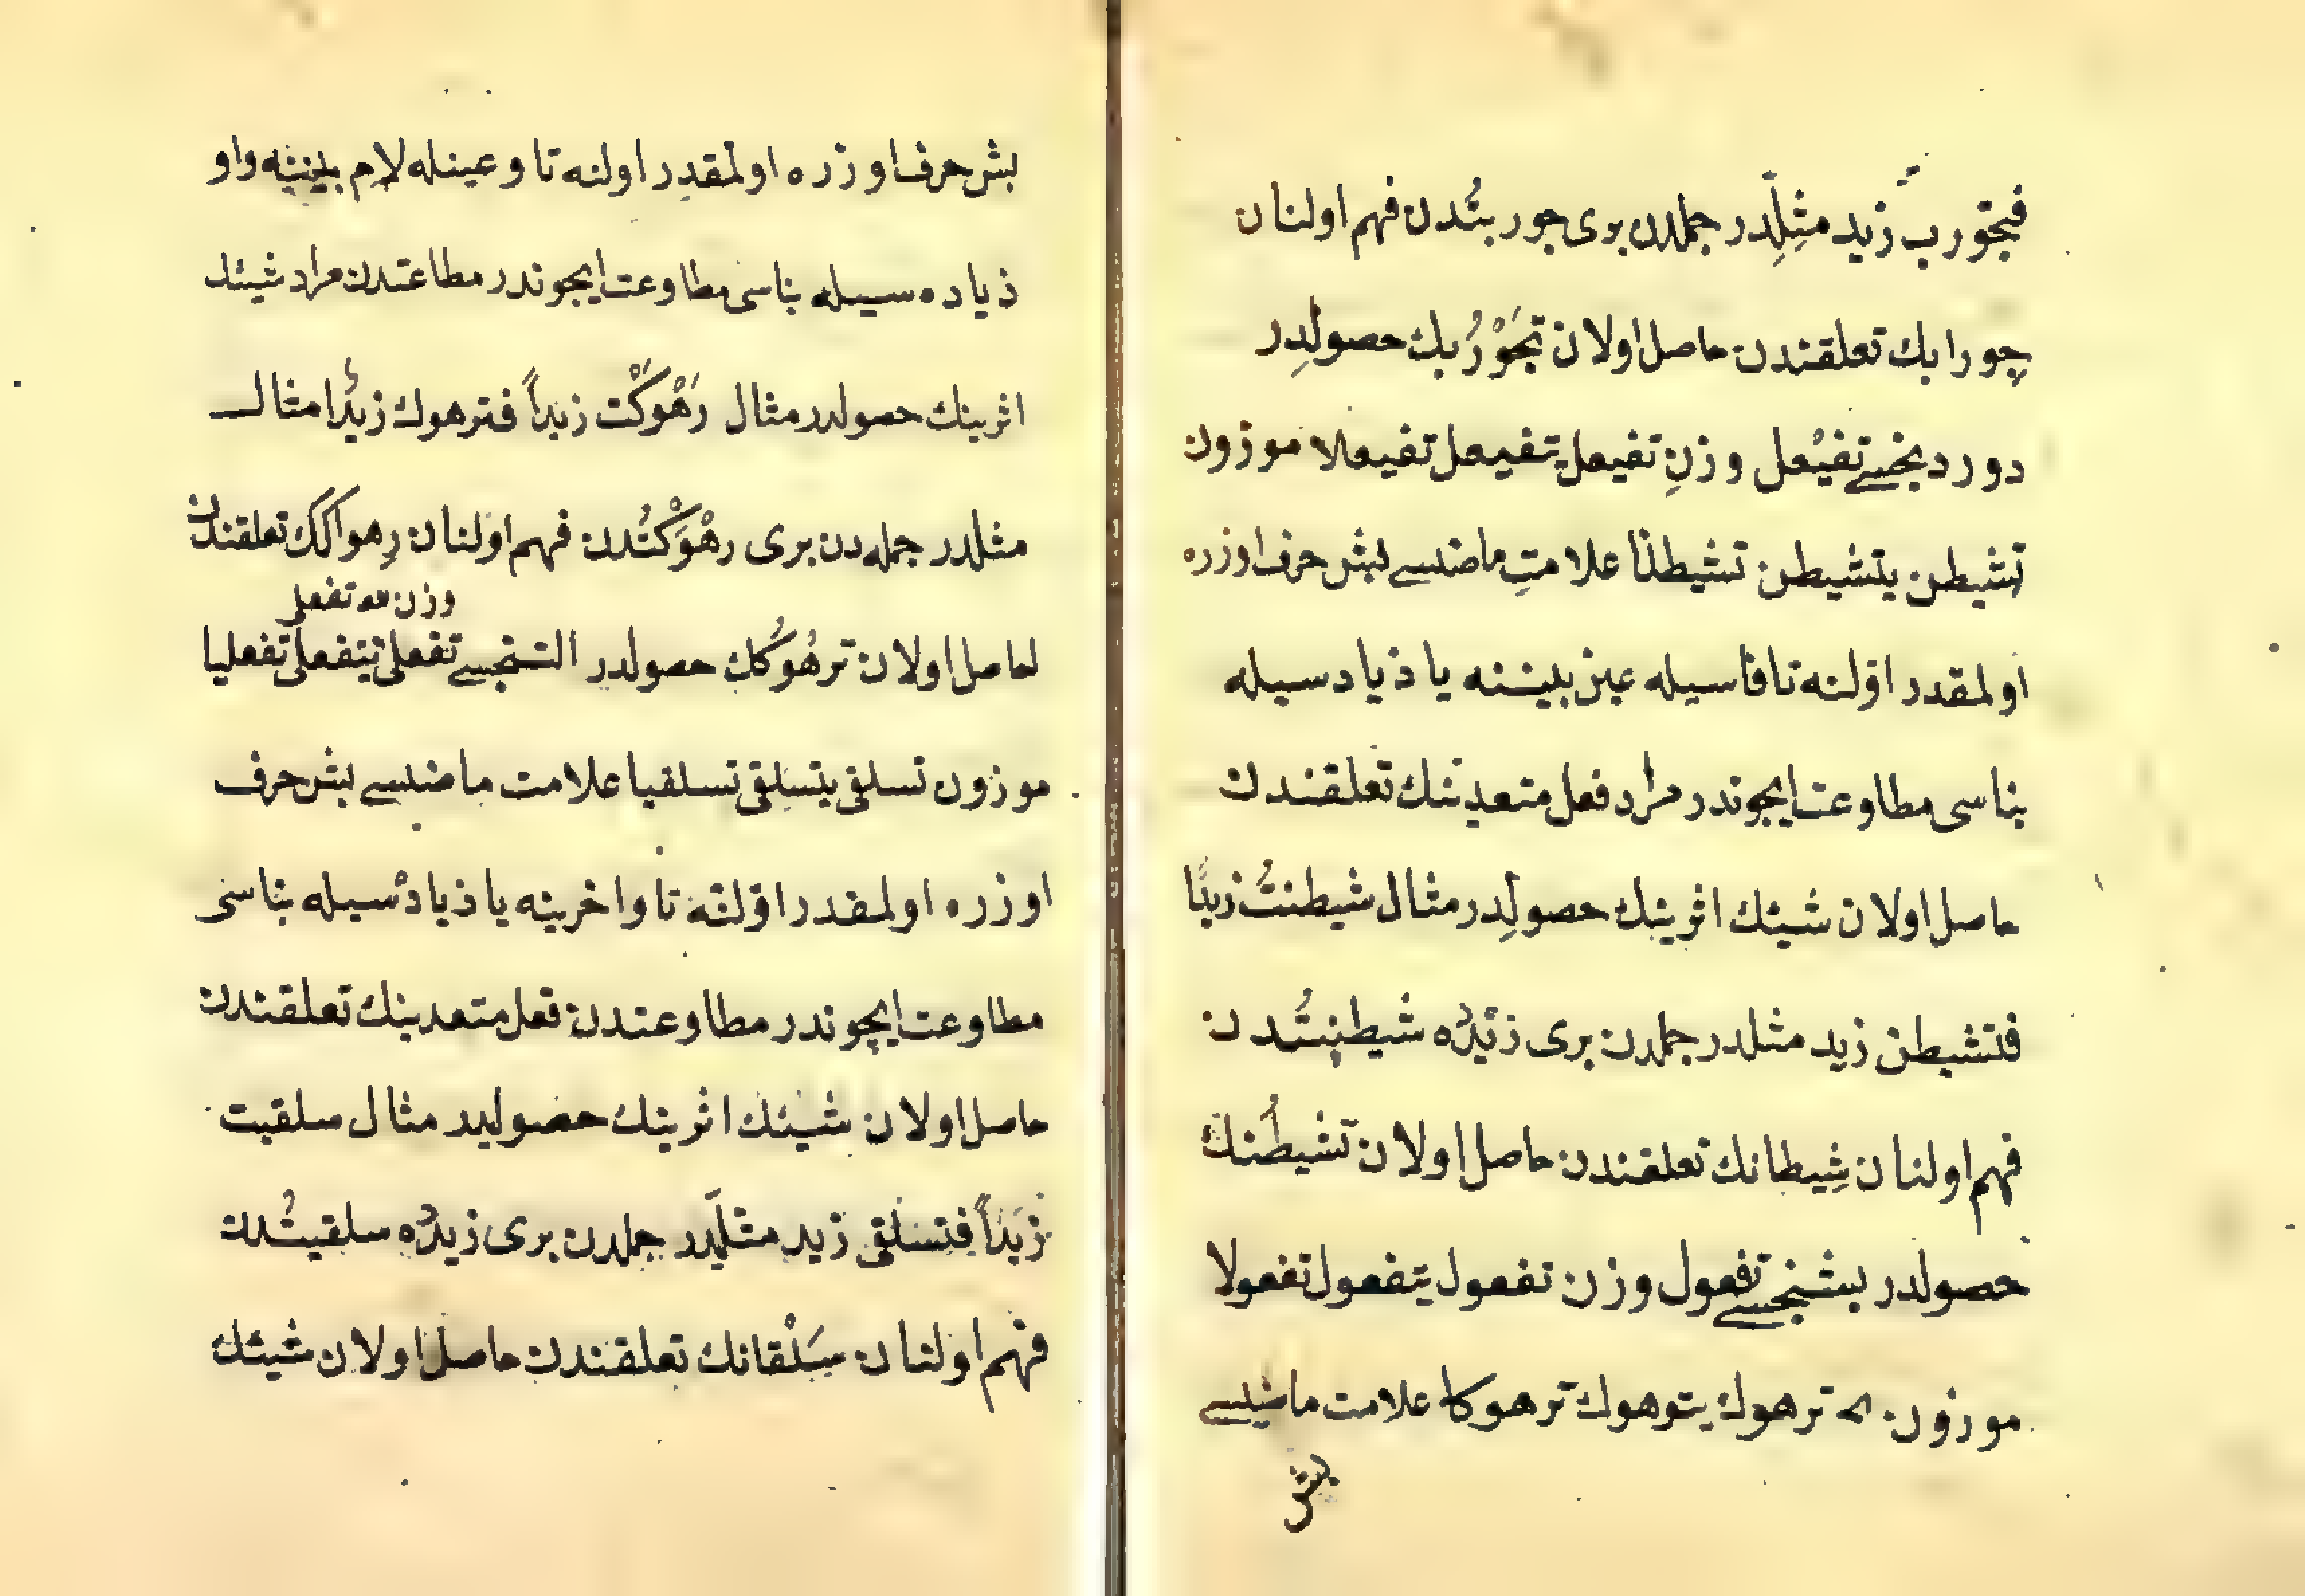 فتجورب زيد مثلدر جملدن برى جوربتُدن فهم اولنان
جورابك تعلقندن حاصل اولان تَجَوْرُبك حصولدر
دوردنجسے تفيْعل وزنِ تفيعل يتفيعل تفيعلا موزون
تشيطن يتشيطن تشيطنا علامتِ ماضسے بش حرف اوزره
اولمقدر اوّلنه تا فاسيله عين بيننه يا ذياد سيله
بناسى مطاوعت ايچوندر مراد فعل متعدينك تعلقندن
حاصل اولان شيئك اثرينك حصولِدر مثال شيطنتُ زيدًا
فتشيطن زيد مثلدر جملدن برى زيدْه شيطنتُدن
فهم اولنان شِيطانك تعلقندن حاصل اولان تشيطُنك
حصولدر بشنجسے تفعول وزن تفعول يتفعول تفعولا
موزون ترهوك يترهوك ترهوكا علامت ماضيسے
بش
بش حرف اوزره اولمقدر اولنه تا و عينله لام بيننه واو
ذياده سيله بناسى مطاوعت ايچوندر مطاعتدن مراد شيئك
اثرينك حصولدر مثال رَهْوَكْت زيداً فترهوك زيدًا مثال
مثلدر جمله دن برى رهْوَكْتُدن فهم اولنان رِهواكك تعلقندن
وزن تفعلى
حاصل اولان ترهْوُكك حصولدر التنجسے تفعلى يتفعلى تفعليا
موزون تسلقى يتسلقى تسلقيا علامت ماضسے بش حرف
اوزره اولمقدر اوّلنه تا و اخرينه يا ذيادْسيله بناسى
مطاوعت ايچوندر مطاوعتدن فعل متعدينك تعلقندن
حاصل اولان شيئك اثرينك حصوليدر مثال سلقيت
زَيداً فتسلقى زيد مثلدر جملدن برى زيدْه سلقيتُدن
فهم اولنان سَلْقانك تعلقندن حاصل اولان شيئك